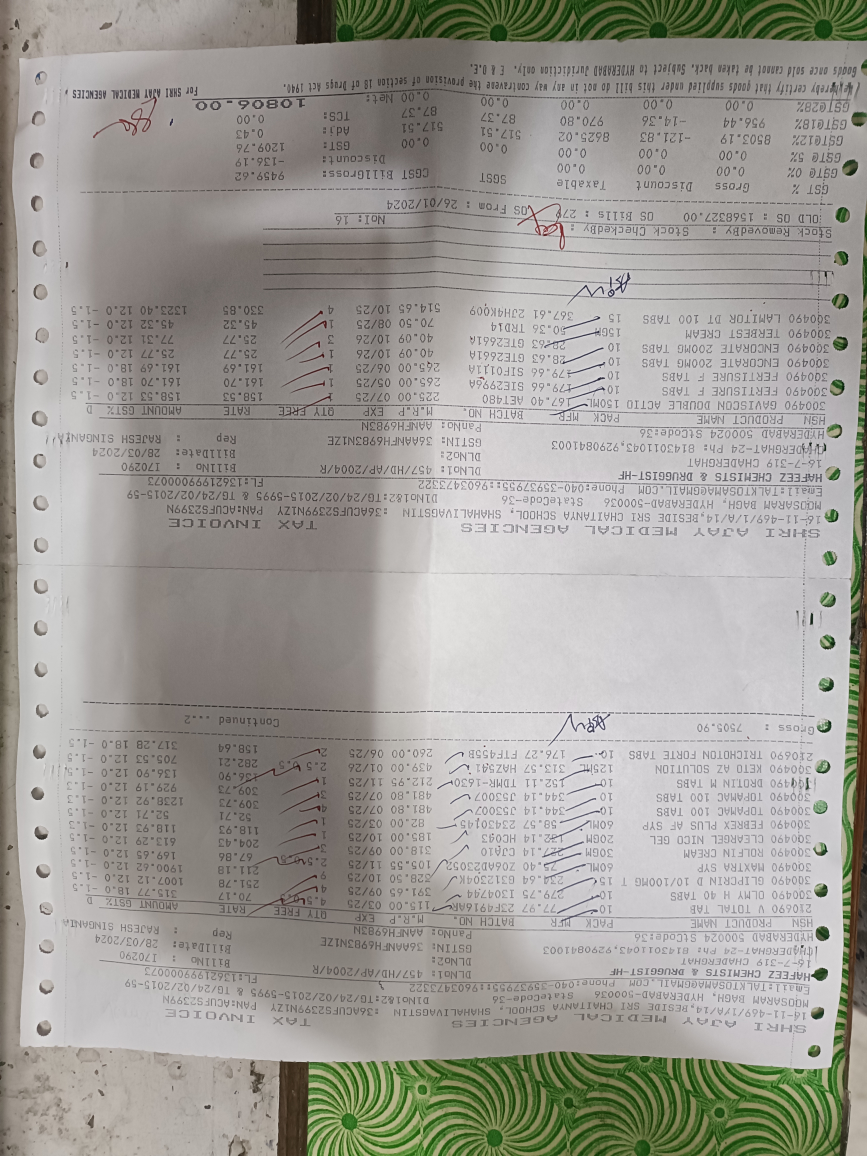 SHRI AJAY MEDICAL AGENCIES TAX INVOICE
16-11-469/1/A/14,BESIDE SRI CHAITANYA SCHOOL, SHAHALIVAGSTIN :36ACUFS2399N1ZY PAN:ACUFS2399N
MOOSARAM BAGH, HYDERABAD-500036 StateCode-36 DlNo1&2:TG/24/02/2015-5995 & TG/24/02/2015-59
Email:TALKTOSAMA@GMAIL.COM Phone:040-35937955::9603473322 FL:13621999000073
HAFEEZ CHEMISTS & DRUGGIST-HF DLNo1: 457/HD/AP/2004/R BillNo : I70290
16-7-319 CHADERGHAT DLNo2: BillDate: 28/03/2024
CHADERGHAT-24 Ph: 8143011043,9290841003 GSTIN: 36AANFH6983N1ZE Rep : RAJESH SINGANIA
HYDERABAD 500024 StCode:36 PanNo: AANFH6983N
HSN PRODUCT NAME PACK MFR BATCH NO. M.R.P EXP QTY FREE RATE AMOUNT GST% D
210690 V TOTAL TAB 10 77.97 23F4916AR 115.00 03/25 4.5 0.5 70.17 315.77 18.0 -1.5
300490 OLMY H 40 TABS 10 279.75 1304744 391.65 09/25 4 251.78 1007.12 12.0 -1.5
300490 GLIPCRIN D 10/100MG T 15 234.64 328.50 10/25 9 211.18 1900.62 12.0 -1.5
300490 MAXTRA SYP 60ML 75.40 Z06AD23052 105.55 11/25 2.5 0.5 67.86 169.65 12.0 -1.5
300490 ROLFIN CREAM 30GM 227.14 CJA10 318.00 09/25 3 204.43 613.29 12.0 -1.5
300490 CLEARGEL NICO GEL 20GM 132.14 HC093 185.00 10/25 1 118.93 118.93 12.0 -1.5
300490 FEBREX PLUS AF SYP 60ML 58.57 23423014 82.00 03/25 1 52.71 52.71 12.0 -1.5
300490 TOPAMAC 100 TABS 10 344.14 J5J3007 481.80 07/25 4 309.73 1238.92 12.0 -1.5
300490 TOPAMAC 100 TABS 10 344.14 J5J3007 481.80 07/25 3 309.73 929.19 12.0 -1.5
300490 DROTIN M TABS 10 152.11 TDMR-1630 212.95 11/25 1 136.90 136.90 12.0 -1.5
300490 KETO AZ SOLUTION 125ML 313.57 439.00 01/26 2.5 0.5 282.21 705.53 12.0 -1.5
210690 TRICHOTON FORTE TABS 10 176.27 FTF455B 260.00 06/25 2 158.64 317.28 18.0 -1.5
Gross : 7505.90 Continued ...2
SHRI AJAY MEDICAL AGENCIES TAX INVOICE
16-11-469/1/A/14,BESIDE SRI CHAITANYA SCHOOL, SHAHALIVAGSTIN :36ACUFS2399N1ZY PAN:ACUFS2399N
MOOSARAM BAGH, HYDERABAD-500036 StateCode-36 DlNo1&2:TG/24/02/2015-5995 & TG/24/02/2015-59
Email:TALKTOSAMA@GMAIL.COM Phone:040-35937955::9603473322 FL:13621999000073
HAFEEZ CHEMISTS & DRUGGIST-HF DLNo1: 457/HD/AP/2004/R BillNo : I70290
16-7-319 CHADERGHAT DLNo2: BillDate: 28/03/2024
CHADERGHAT-24 Ph: 8143011043,9290841003 GSTIN: 36AANFH6983N1ZE Rep : RAJESH SINGANIA
HYDERABAD 500024 StCode:36 PanNo: AANFH6983N
HSN PRODUCT NAME PACK MFR BATCH NO. M.R.P EXP QTY FREE RATE AMOUNT GST% D
300490 GAVISCON DOUBLE ACTIO 150ML 167.40 AET480 225.00 07/25 1 158.53 158.53 12.0 -1.5
300490 FERTISURE F TABS 10 179.66 SIE2996A 265.00 05/25 1 161.70 161.70 18.0 -1.5
300490 FERTISURE F TABS 10 179.66 SIF0111A 265.00 06/25 1 161.69 161.69 18.0 -1.5
300490 ENCORATE 200MG TABS 10 28.63 GTE2261A 40.09 10/26 1 25.77 25.77 12.0 -1.5
300490 ENCORATE 200MG TABS 10 28.63 GTE2261A 40.09 10/26 3 25.77 77.31 12.0 -1.5
300490 TERBEST CREAM 15GM 50.36 TRD14 70.50 08/25 1 45.32 45.32 12.0 -1.5
300490 LAMITOR DT 100 TABS 15 367.61 2JH4K009 514.65 10/25 4 330.85 1323.40 12.0 -1.5
Stock RemovedBy : Stock CheckedBy : NoI: 16
OLD OS : 1568327.00 OS Bills : 276 OS From : 26/01/2024
GST % Gross Discount Taxable SGST CGST BillGross: 9459.62
GST@ 0% 0.00 0.00 0.00 Discount: -136.19
GST@ 5% 0.00 0.00 0.00 0.00 0.00 GST: 1209.76
GST@12% 8503.19 -121.83 8625.02 517.51 517.51 Adj: 0.43
GST@18% 956.44 -14.36 970.80 87.37 87.37 TCS: 0.00
GST@28% 0.00 0.00 0.00 0.00 0.00 Net: 10806.00
I hereby certify that goods supplied under this bill do not in any way contravene the provision of section 18 of Drugs Act 1940. For SHRI AJAY MEDICAL AGENCIES
Goods once sold cannot be taken back. Subject to HYDERABAD Juridiction only. E & O.E.